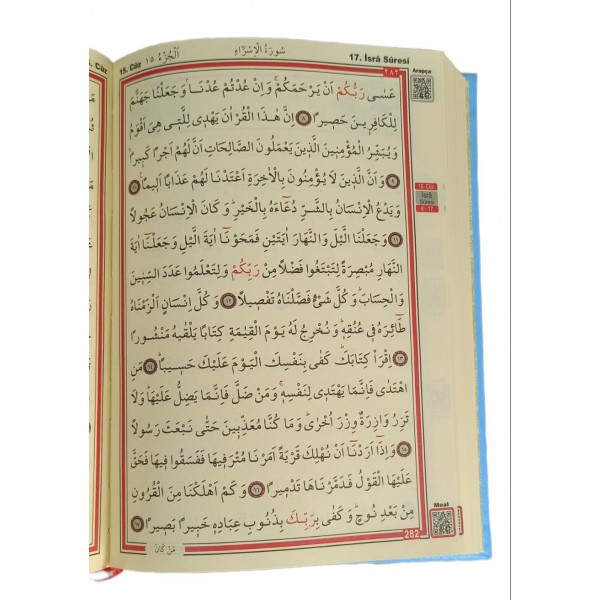 15. Cüz
اَلْجُزْءُ ١٥
سُورَةُ الْاِسْرَٓاءِ
17. İsrâ Sûresi
Cüz
٢٨٢
Arapça
عَسٰى رَبُّكُمْ اَنْ يَرْحَمَكُمْۚ وَاِنْ عُدْتُمْ عُدْنَاۢ وَجَعَلْنَا جَهَنَّمَ
لِلْكَافِر۪ينَ حَص۪يرًا ﴿٨﴾ اِنَّ هٰذَا الْقُرْاٰنَ يَهْد۪ي لِلَّت۪ي هِيَ اَقْوَمُ
وَيُبَشِّرُ الْمُؤْمِن۪ينَ الَّذ۪ينَ يَعْمَلُونَ الصَّالِحَاتِ اَنَّ لَهُمْ اَجْرًا كَب۪يرًاۙ
﴿٩﴾ وَاَنَّ الَّذ۪ينَ لَا يُؤْمِنُونَ بِالْاٰخِرَةِ اَعْتَدْنَا لَهُمْ عَذَابًا اَل۪يمًا۟ ﴿١٠﴾
وَيَدْعُ الْاِنْسَانُ بِالشَّرِّ دُعَٓاءَهُ بِالْخَيْرِۜ وَكَانَ الْاِنْسَانُ عَجُولًا
﴿١١﴾ وَجَعَلْنَا الَّيْلَ وَالنَّهَارَ اٰيَتَيْنِ فَمَحَوْنَٓا اٰيَةَ الَّيْلِ وَجَعَلْنَٓا اٰيَةَ
النَّهَارِ مُبْصِرَةً لِتَبْتَغُوا فَضْلًا مِنْ رَبِّكُمْ وَلِتَعْلَمُوا عَدَدَ السِّن۪ينَ
وَالْحِسَابَۜ وَكُلَّ شَيْءٍ فَصَّلْنَاهُ تَفْص۪يلًا ﴿١٢﴾ وَكُلَّ اِنْسَانٍ اَلْزَمْنَاهُ
طَٓائِرَهُ ف۪ي عُنُقِه۪ۜ وَنُخْرِجُ لَهُ يَوْمَ الْقِيٰمَةِ كِتَابًا يَلْقٰيهُ مَنْشُورًا
﴿١٣﴾ اِقْرَأْ كِتَابَكَۜ كَفٰى بِنَفْسِكَ الْيَوْمَ عَلَيْكَ حَس۪يبًاۜ ﴿١٤﴾ مَنِ
اهْتَدٰى فَاِنَّمَا يَهْتَد۪ي لِنَفْسِه۪ۚ وَمَنْ ضَلَّ فَاِنَّمَا يَضِلُّ عَلَيْهَاۜ وَلَا
تَزِرُ وَازِرَةٌ وِزْرَ اُخْرٰىۜ وَمَا كُنَّا مُعَذِّب۪ينَ حَتّٰى نَبْعَثَ رَسُولًا
﴿١٥﴾ وَاِذَٓا اَرَدْنَٓا اَنْ نُهْلِكَ قَرْيَةً اَمَرْنَا مُتْرَف۪يهَا فَفَسَقُوا ف۪يهَا فَحَقَّ
عَلَيْهَا الْقَوْلُ فَدَمَّرْنَاهَا تَدْم۪يرًا ﴿١٦﴾ وَكَمْ اَهْلَكْنَا مِنَ الْقُرُونِ
مِنْ بَعْدِ نُوحٍۜ وَكَفٰى بِرَبِّكَ بِذُنُوبِ عِبَادِه۪ خَب۪يرًا بَص۪يرًا ﴿١٧﴾
15. Cüz
İsrâ
Sûresi
8 - 17
Meal
282
مَنْ كَانَ